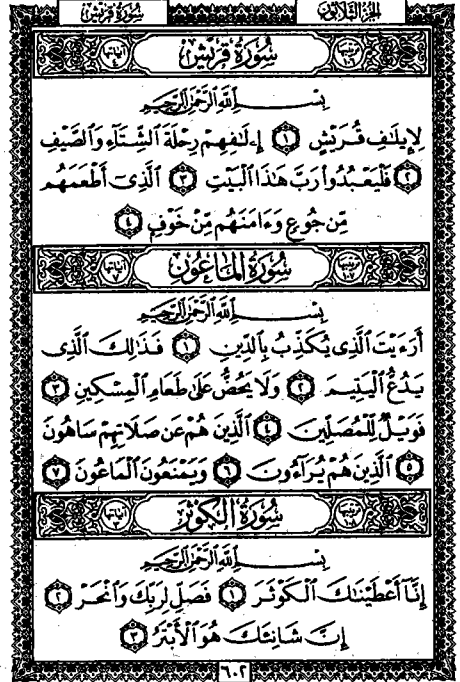 الجزء الثلاثون سورة قريش
ترتيبها ١٠٦ سُورَةُ قُرَيْشٍ آياتها ٤
بِسْمِ اللَّهِ الرَّحْمَٰنِ الرَّحِيمِ
لِإِيلَٰفِ قُرَيْشٍ ١ إِۦلَٰفِهِمْ رِحْلَةَ ٱلشِّتَآءِ وَٱلصَّيْفِ
٢ فَلْيَعْبُدُوا۟ رَبَّ هَٰذَا ٱلْبَيْتِ ٣ ٱلَّذِىٓ أَطْعَمَهُم
مِّن جُوعٍ وَءَامَنَهُم مِّنْ خَوْفٍ ٤
ترتيبها ١٠٧ سُورَةُ الْمَاعُونِ آياتها ٧
بِسْمِ اللَّهِ الرَّحْمَٰنِ الرَّحِيمِ
أَرَءَيْتَ ٱلَّذِى يُكَذِّبُ بِٱلدِّينِ ١ فَذَٰلِكَ ٱلَّذِى
يَدُعُّ ٱلْيَتِيمَ ٢ وَلَا يَحُضُّ عَلَىٰ طَعَامِ ٱلْمِسْكِينِ ٣
فَوَيْلٌ لِّلْمُصَلِّينَ ٤ ٱلَّذِينَ هُمْ عَن صَلَاتِهِمْ سَاهُونَ
٥ ٱلَّذِينَ هُمْ يُرَآءُونَ ٦ وَيَمْنَعُونَ ٱلْمَاعُونَ ٧
ترتيبها ١٠٨ سُورَةُ الْكَوْثَرِ آياتها ٣
بِسْمِ اللَّهِ الرَّحْمَٰنِ الرَّحِيمِ
إِنَّآ أَعْطَيْنَٰكَ ٱلْكَوْثَرَ ١ فَصَلِّ لِرَبِّكَ وَٱنْحَرْ ٢
إِنَّ شَانِئَكَ هُوَ ٱلْأَبْتَرُ ٣
٦٠٢